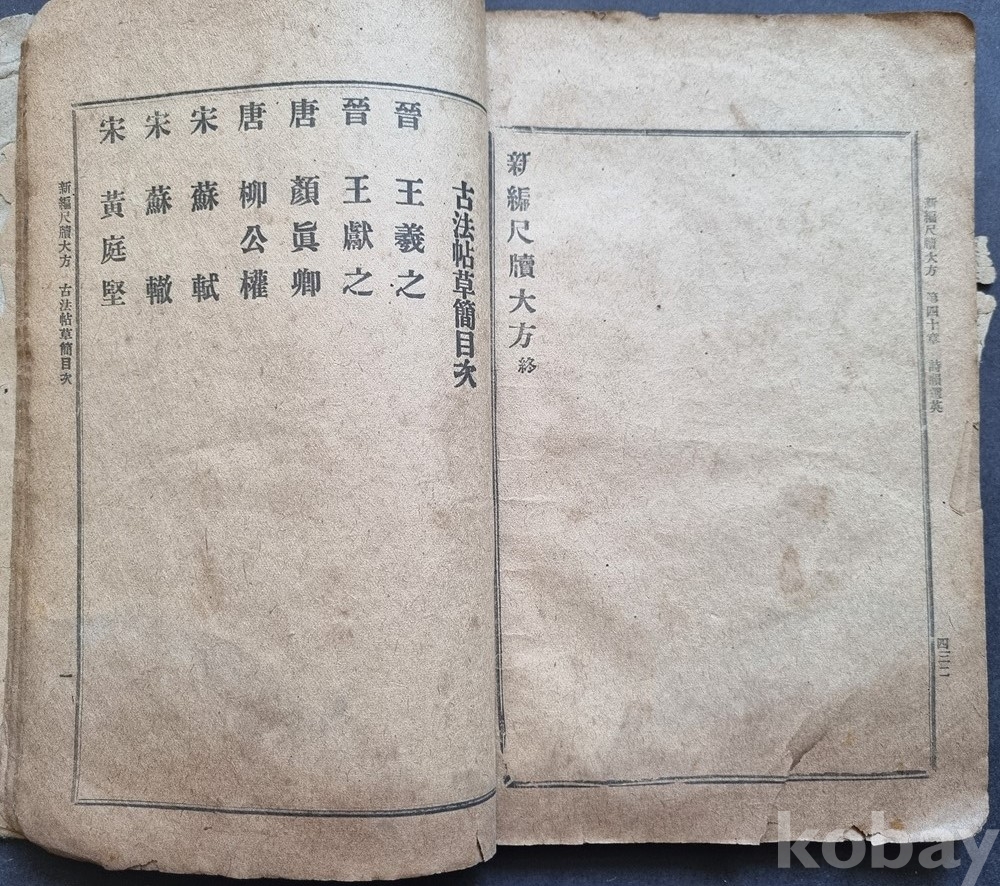 新編尺牘大方 第四十章 詩韻選英
四三二
新編尺牘大方 終
古法帖草簡目次
晉 王羲之
晉 王獻之
唐 顏眞卿
唐 柳公權
宋 蘇軾
宋 蘇轍
宋 黃庭堅
新編尺牘大方 古法帖草簡目次
一
kobay